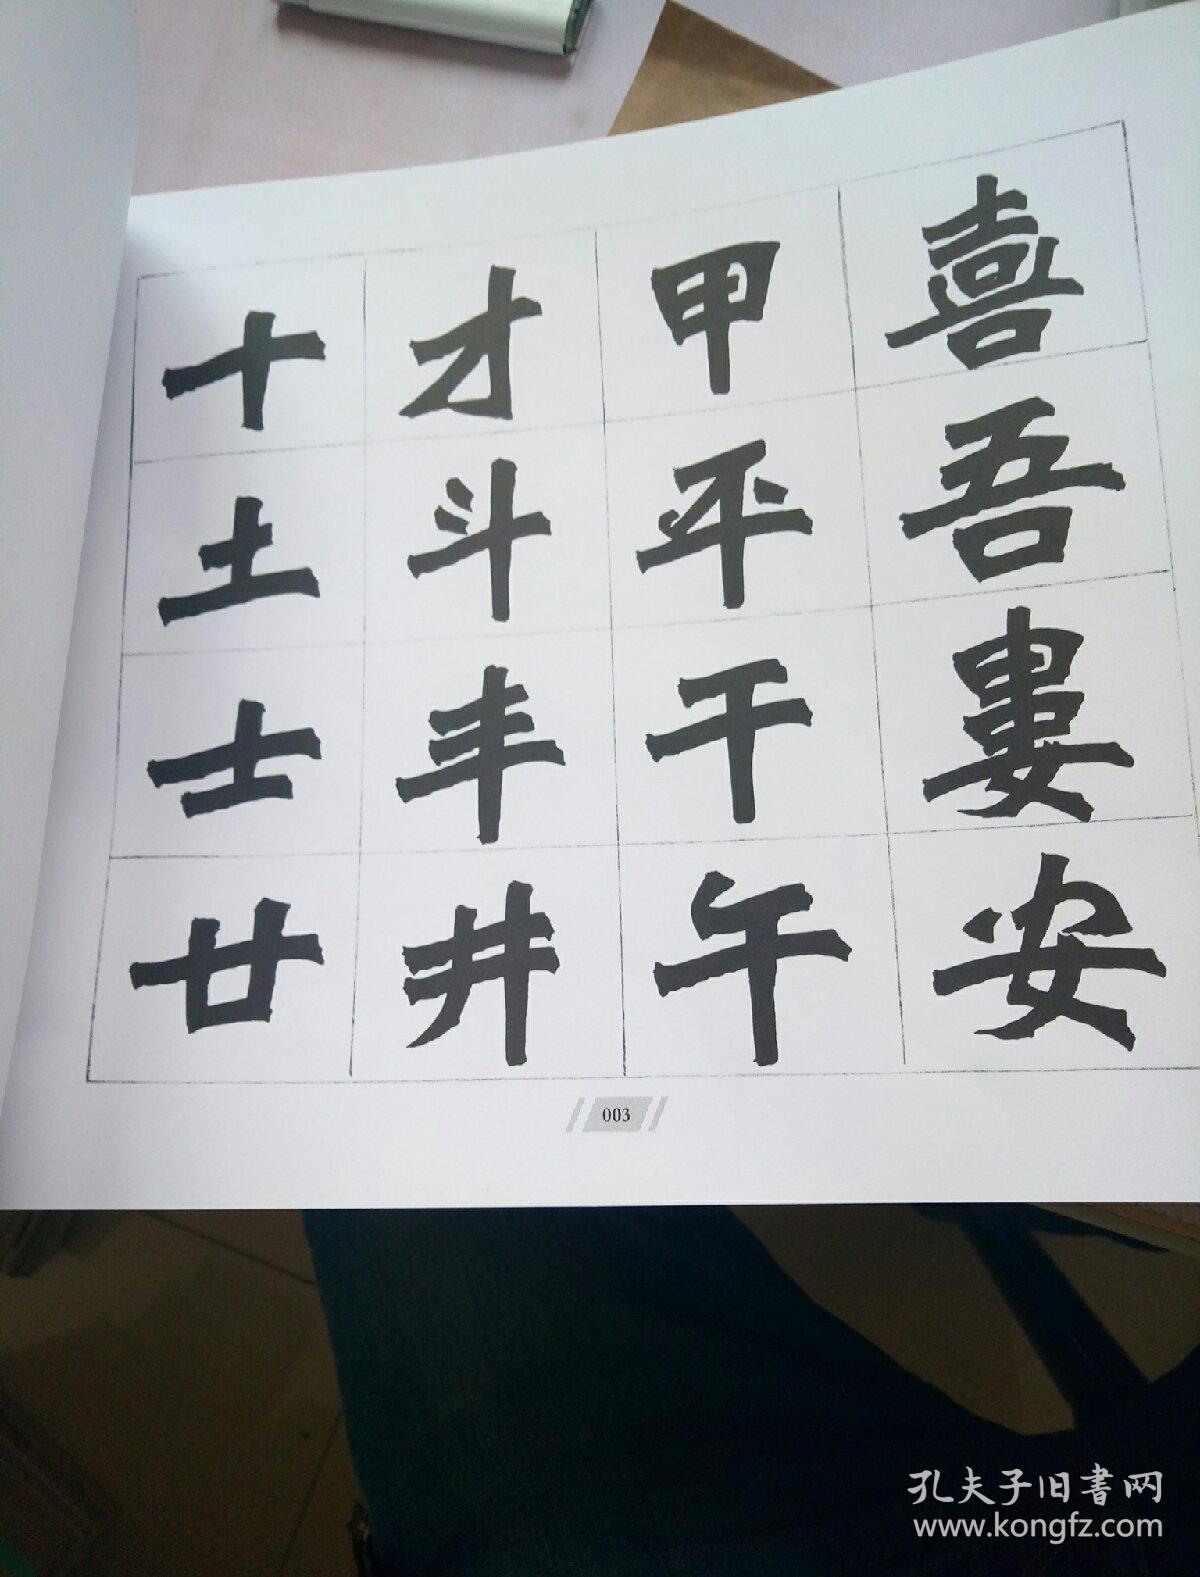 十 才 甲 喜
土 斗 平 吾
士 丰 干 婁
廿 井 午 安
003
孔夫子旧書网
www.kongfz.com